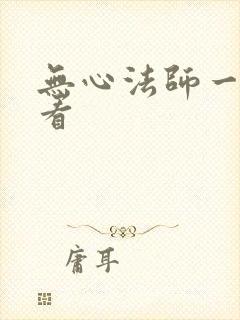 無心法師一
看
庸耳